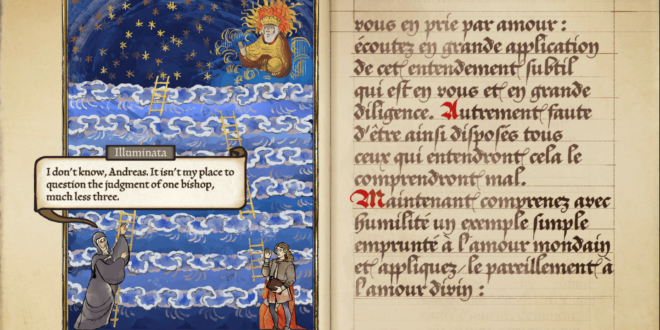 Illuminata
I don't know, Andreas. It isn't my place to
question the judgment of one bishop,
much less three.
vous en prie par amour :
écoutez en grande application
de cet entendement subtil
qui est en vous et en grande
diligence. Autrement faute
d'être ainsi disposés tous
ceux qui entendront cela le
comprendront mal.
Maintenant comprenez avec
humilité un exemple simple
emprunté à l'amour mondain
et appliquez le pareillement à
l'amour divin :